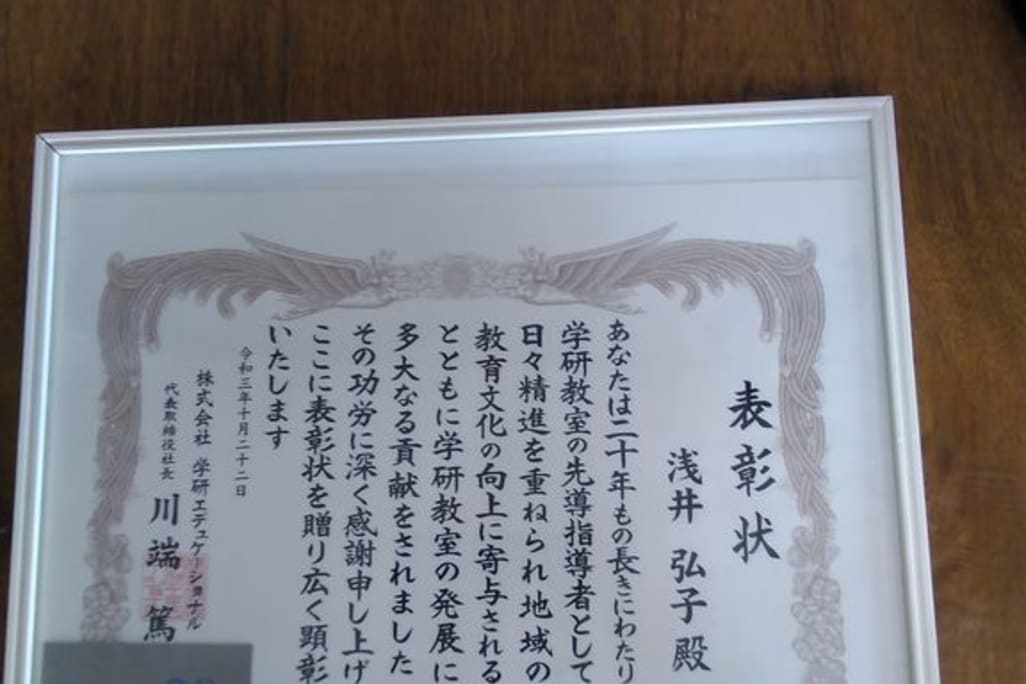 表彰状
浅井 弘子 殿
あなたは二十年もの長きにわたり
学研教室の先導指導者として
日々精進を重ねられ地域の
教育文化の向上に寄与される
とともに学研教室の発展に
多大なる貢献をされました
その功労に深く感謝申し上げ
ここに表彰状を贈り広く顕彰
いたします
令和三年十月二十二日
株式会社 学研エデュケーショナル
代表取締役社長 川端 篤